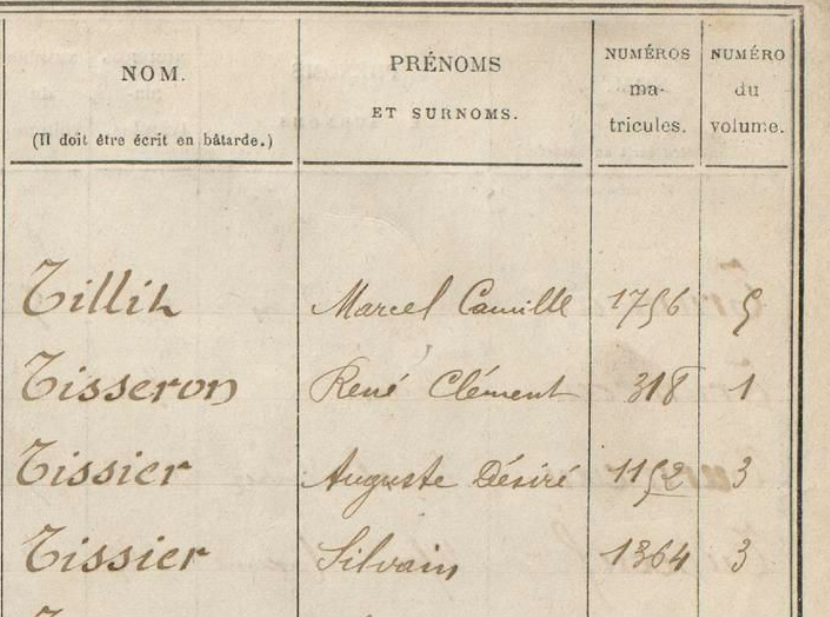 NOM.
(Il doit être écrit en bâtarde.)
PRÉNOMS
ET SURNOMS.
NUMÉROS
ma-
tricules.
NUMÉRO
du
volume.
Tillih Marcel Camille 1756 5
Tisseron René Clément 318 1
Tissier Auguste Désiré 1152 3
Tissier Silvain 1364 3